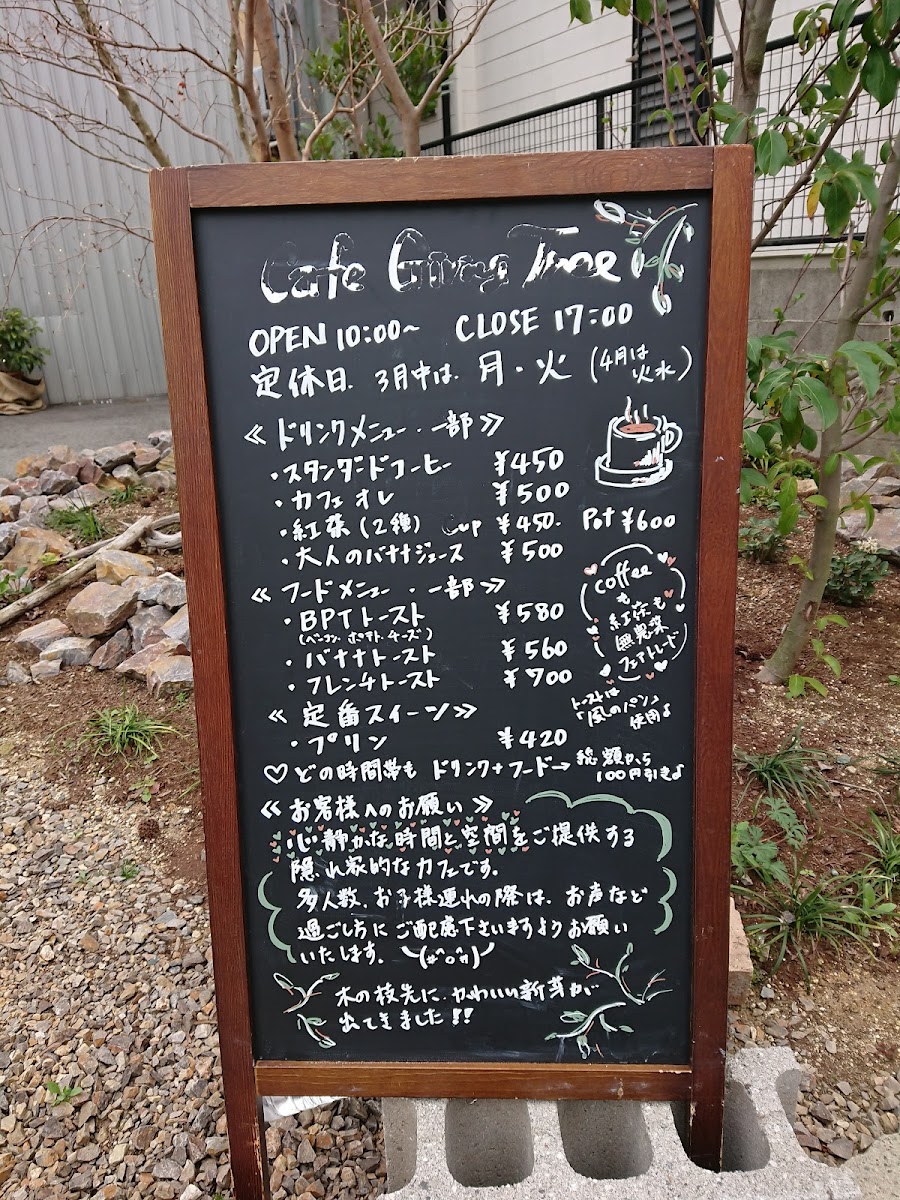 Cafe Giving Time
OPEN 10:00~ CLOSE 17:00
定休日. 3月中は. 月・火 (4月は火水)
≪ドリンクメニュー・一部≫
・スタンダードコーヒー ¥450
・カフェオレ ¥500
・紅茶(2種) Cup ¥450. Pot ¥600
・大人のバナナジュース ¥500
≪フードメニュー・一部≫
・BPTトースト ¥580
(ベーコン ポテト チーズ)
・バナナトースト ¥560
・フレンチトースト ¥700
coffee
も
紅茶も
無農薬
フェアトレード
トーストは
「風のパン」
使用♪
≪定番スイーツ≫
・プリン ¥420
♡どの時間帯も ドリンク+フード→ 総額から
100円引き♪
≪お客様へのお願い≫
心静かな時間と空間をご提供する
隠れ家的なカフェです。
多人数、お子様連れの際は、お声など
過ごし方にご配慮下さいますようお願い
いたします。 \(#^o^#)/
木の枝先に、かわいい新芽が
出てきました!!